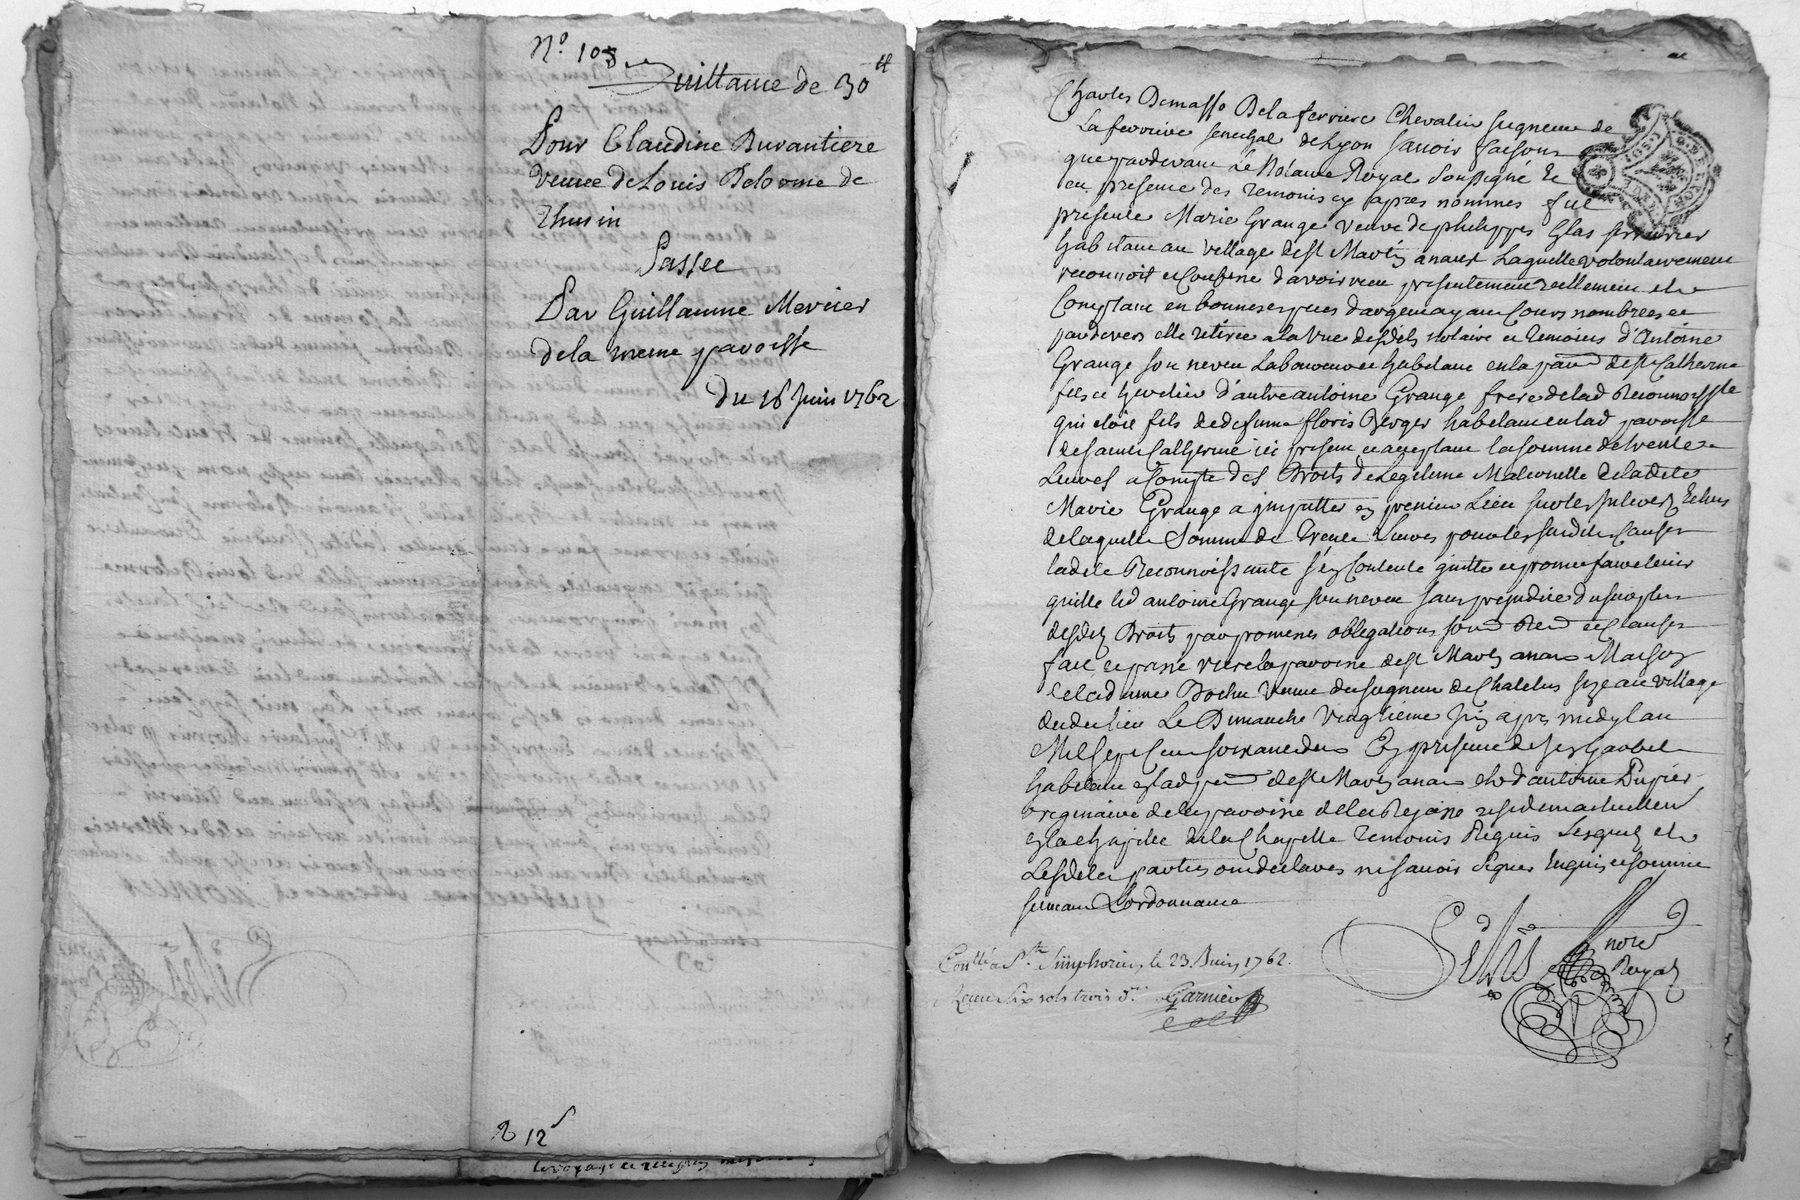 N.° 105
Quittance de 30ᵗᵗ
Pour Claudine Durantiere
veuve de Louis Delorme de
Thurin
Passee
Par Guillaume Mercier
de la meme paroisse
du 16 Juin 1762
R 12ˢ
Charles Demasso Delaferriere Chevalier seigneur de
Laferriere senechal de Lyon savoir faisons
que pardevant Le Notaire Royal soussigné et
en presence des temoins cy apres nommés fut
presente Marie Grange veuve de philippes Glas serrurier
habitant au village de st Martin anaux Laquelle volontairement
reconnoit et confesse d'avoir receu presentement reellement et
Comptant en bonnes especes d'argent ayant Cours nombrées et
pardevers elle retirée a la vue desdits notaire et temoins d'Antoine
Grange son neveu Laboureur habitant en la parr de ste Catherine
fils et heritier d'autre antoine Grange frere de lad Reconnoissante
qui etoit fils de defunte floris Berger habitant en lad paroisse
de sainte Catherine ici present et acceptant la somme de trente
Livres a Compte des Droits de Legitime Maternelle de ladite
Marie Grange a imputter en premier Lieu sur les interets Echus
de laquelle somme de Trente Livres pour les susdites Causes
ladite Reconnoissante s'en Contente quitte et promet faire tenir
quitte led antoine Grange son neveu sans prejudice du surplus
desdits Droits par promesses obligations soumd Rend et Clauses
fait et passé riere la paroisse de st Martin anaux Maison
de la dame Bochu veuve du seigneur de Chatelus size au village
dudit lieu Le Dimanche vingtieme Juin apres midy l'an
Mil sept Cent soixante deux En presence de
habitant en lad parr de st Martin anaux et d'antoine Dupier
originaire de la paroisse de la Rejasse residant actuellement
en la Chapelle Temoins Requis Lesquels et
Lesdites parties ont declarés ne savoir signer Enquis et sommés
suivant L'ordonnance
notre
Royal
Con.llé a S.t Simphorien, le 23. Juin, 1762.
Receu six sols trois d.rs Garnier